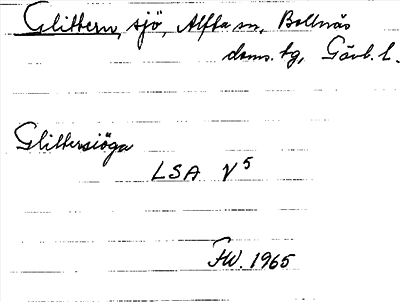 Glittern, sjö, Alfta sn, Bollnäs
doms. tg, Gävl. l.
Glittersiöga
LSA V5
FW. 1965